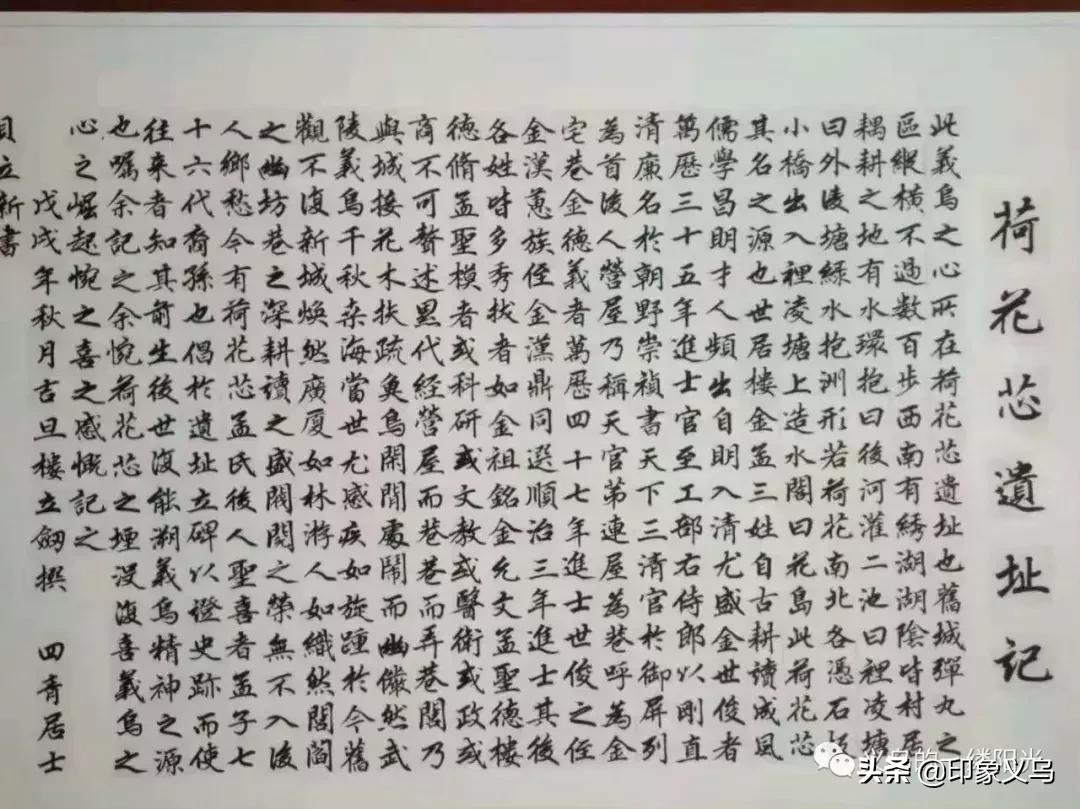 荷花芯遺址記
此義烏之心所在荷花芯遺址也舊城彈丸之
區縱横不過數百步西南有綉湖湖陰皆村居
耦耕之地有水環抱曰後河灌二池曰裡凌塘
曰外凌塘緑水抱洲形若荷花南北各憑石
小橋出入裡凌塘上造水閣曰花島此荷花芯
其名之源也世居樓金孟三姓自古耕讀成風
儒學昌明才人頻出自明入清尤盛金世俊者
萬歷三十五年進士官至工部右侍郎以剛直
清廉名於朝野崇禎書天下三清官於御屏列
為首後人營屋乃稱天官第連屋為巷呼為金
宅巷金德義者萬歷四十七年進士世俊之侄
金漢蕙族侄金漢鼎同選順治三年進士其後
各姓皆多秀拔者如金祖銘金允文孟聖德樓
德脩孟聖模者或科研或文教或醫術或政或
商不可贅述累代經營屋而巷巷而弄巷閭乃
與城接花木扶疏奐烏閑閒處鬧而幽儼然武
陵義烏千秋桑海當世尤感疾如旋踵於今舊
觀不復新城煥然廣厦如林游人如織然閭閻
之幽坊巷之深耕讀之盛閥閱之榮無不入後
人鄉愁今有荷花芯孟氏後人聖喜者孟子七
十六代裔孫也倡於遺址立碑以證史跡而使
往来者知其前生後世復能溯義烏精神之源
也囑余記之余惋荷花芯之堙没復喜義烏之
心之崛起惋之喜之感慨記之
戊戌年秋月吉旦樓立劒撰 四青居士
立新書
义乌的一缕阳光
头条 @印象义乌